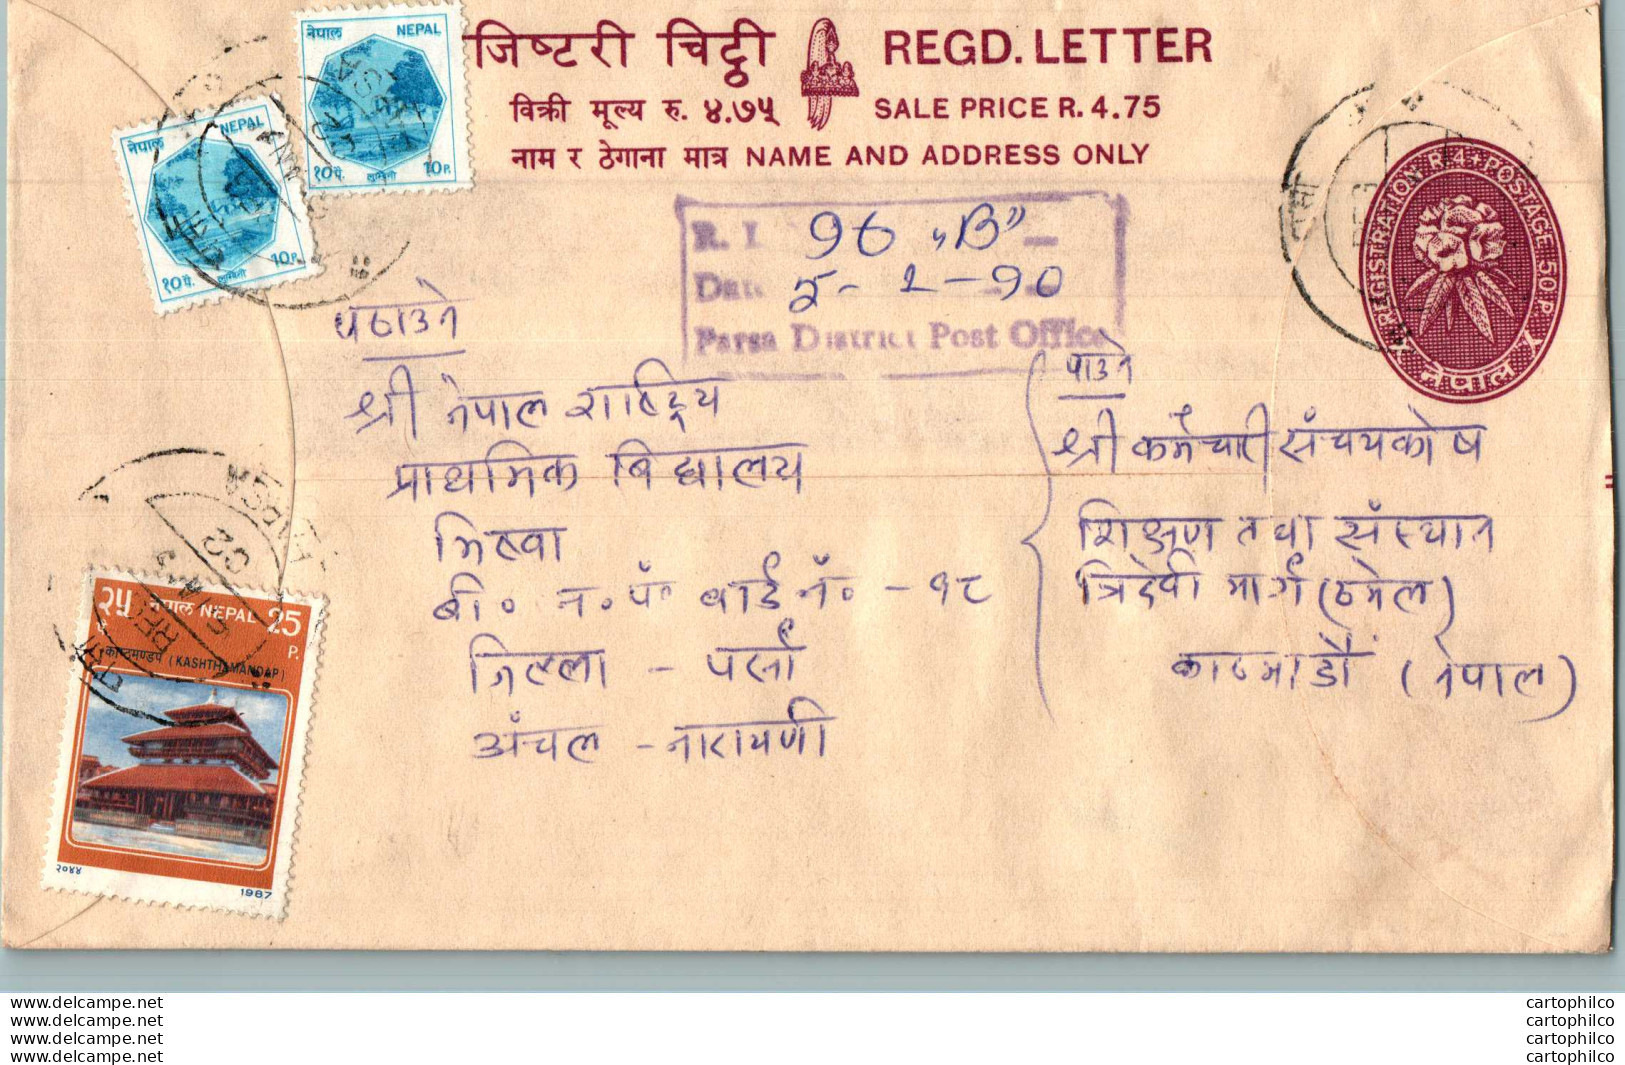 जिष्टरी चिट्ठी REGD. LETTER
विक्री मूल्य रु. ४.७५ SALE PRICE R. 4.75
नाम र ठेगाना मात्र NAME AND ADDRESS ONLY
नेपाल NEPAL
१०पै. लुम्बिनी 10P.
नेपाल NEPAL
१०पै. लुम्बिनी 10P.
REGISTRATION R.4. POSTAGE 50P.
नेपाल
R.
96 "B"
Date
५- 1-90
Parsa District Post Office
पठाउने
श्री नेपाल राष्ट्रिय
प्राथमिक बिद्यालय
भिष्वा
बी० न.पं० वार्ड नं० - १८
जिल्ला - पर्सा
अंचल - नारायणी
पाउने
श्री कर्मचारी संचयकोष
शिक्षण तथा संस्थान
त्रिदेवी मार्ग (ठमेल)
काठमाडौं (नेपाल)
२५ नेपाल NEPAL 25
P.
काष्ठमण्डप (KASHTHAMANDAP)
२०४४ 1987
www.delcampe.net
www.delcampe.net
www.delcampe.net
www.delcampe.net
cartophilco
cartophilco
cartophilco
cartophilco